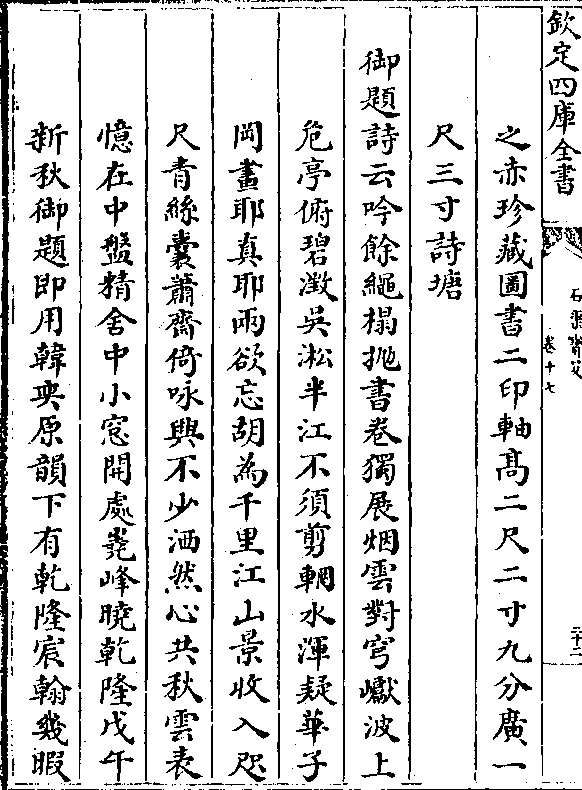 欽定四庫全書
卷十七
之赤珍藏圖書二印軸高二尺二寸九分廣一
尺三寸詩塘
御題詩云吟餘繩榻抛書卷獨展烟雲對穹巘波上
危亭俯碧澂吳淞半江不須剪輞水渾疑華子
岡畫耶真耶兩欲忘胡為千里江山景收入咫
尺青絲囊蕭齋倚咏興不少洒然心共秋雲表
憶在中盤精舍中小窓開處嶤峰曉乾隆戊午
新秋御題即用韓奕原韻下有乾隆宸翰幾暇